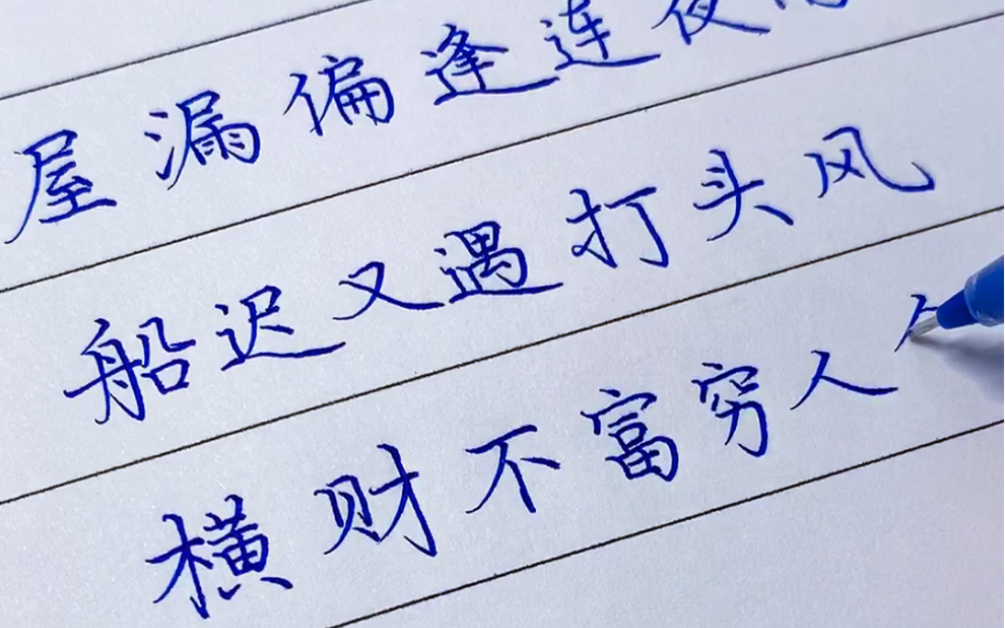 屋漏偏逢连夜
船迟又遇打头风
横财不富穷人